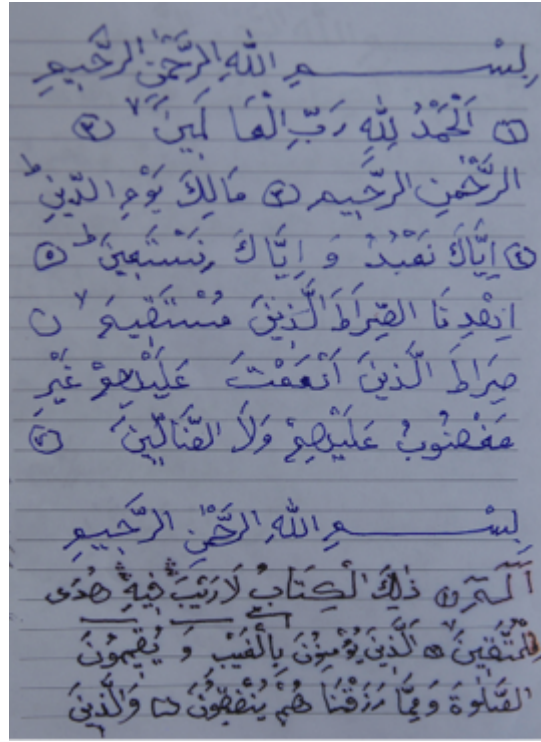 بِسْــــــمِ اللهِ الرَّحْمٰنِ الرَّحِيمِ
① اَلْحَمْدُ لِلّٰهِ رَبِّ الْعَا لَمِينَ ۷ ②
الرَّحْمٰنِ الرَّحِيمِ ③ مَالِكَ يَوْمِ الدِّينِ ط
④ اِيَّاكَ نَعْبُدُ وَ اِيَّا كَ نَسْتَعِينَ ط ⑤
اِهْدِ نَا الصِّرَاطَ الَّذِينَ مُسْتَقِيمَ ۷ ن
صِرَاطَ الَّذِينَ اَنْعَمْتَ عَلَيْهِمْ غَيْرِ
مَغْضُوبُ عَلَيْهِمْ وَلَا الضَّالِّينَ
بِسْــــــمِ اللهِ الرَّحْمٰنِ الرَّحِيمِ
آلٓمٓ ① ذٰلِكَ الْكِتَابُ لَا رَيْبَ فِيهِ هُدَى
لِلْمُتَّقِينَ الَّذِينَ يُؤْمِنُونَ بِالْغَيْبِ وَ يُقِيمُونَ
الصَّلٰوةَ وَمِمَّا رَزَقْنَا هُمْ يُنْفِقُونَ وَالَّذِينَ